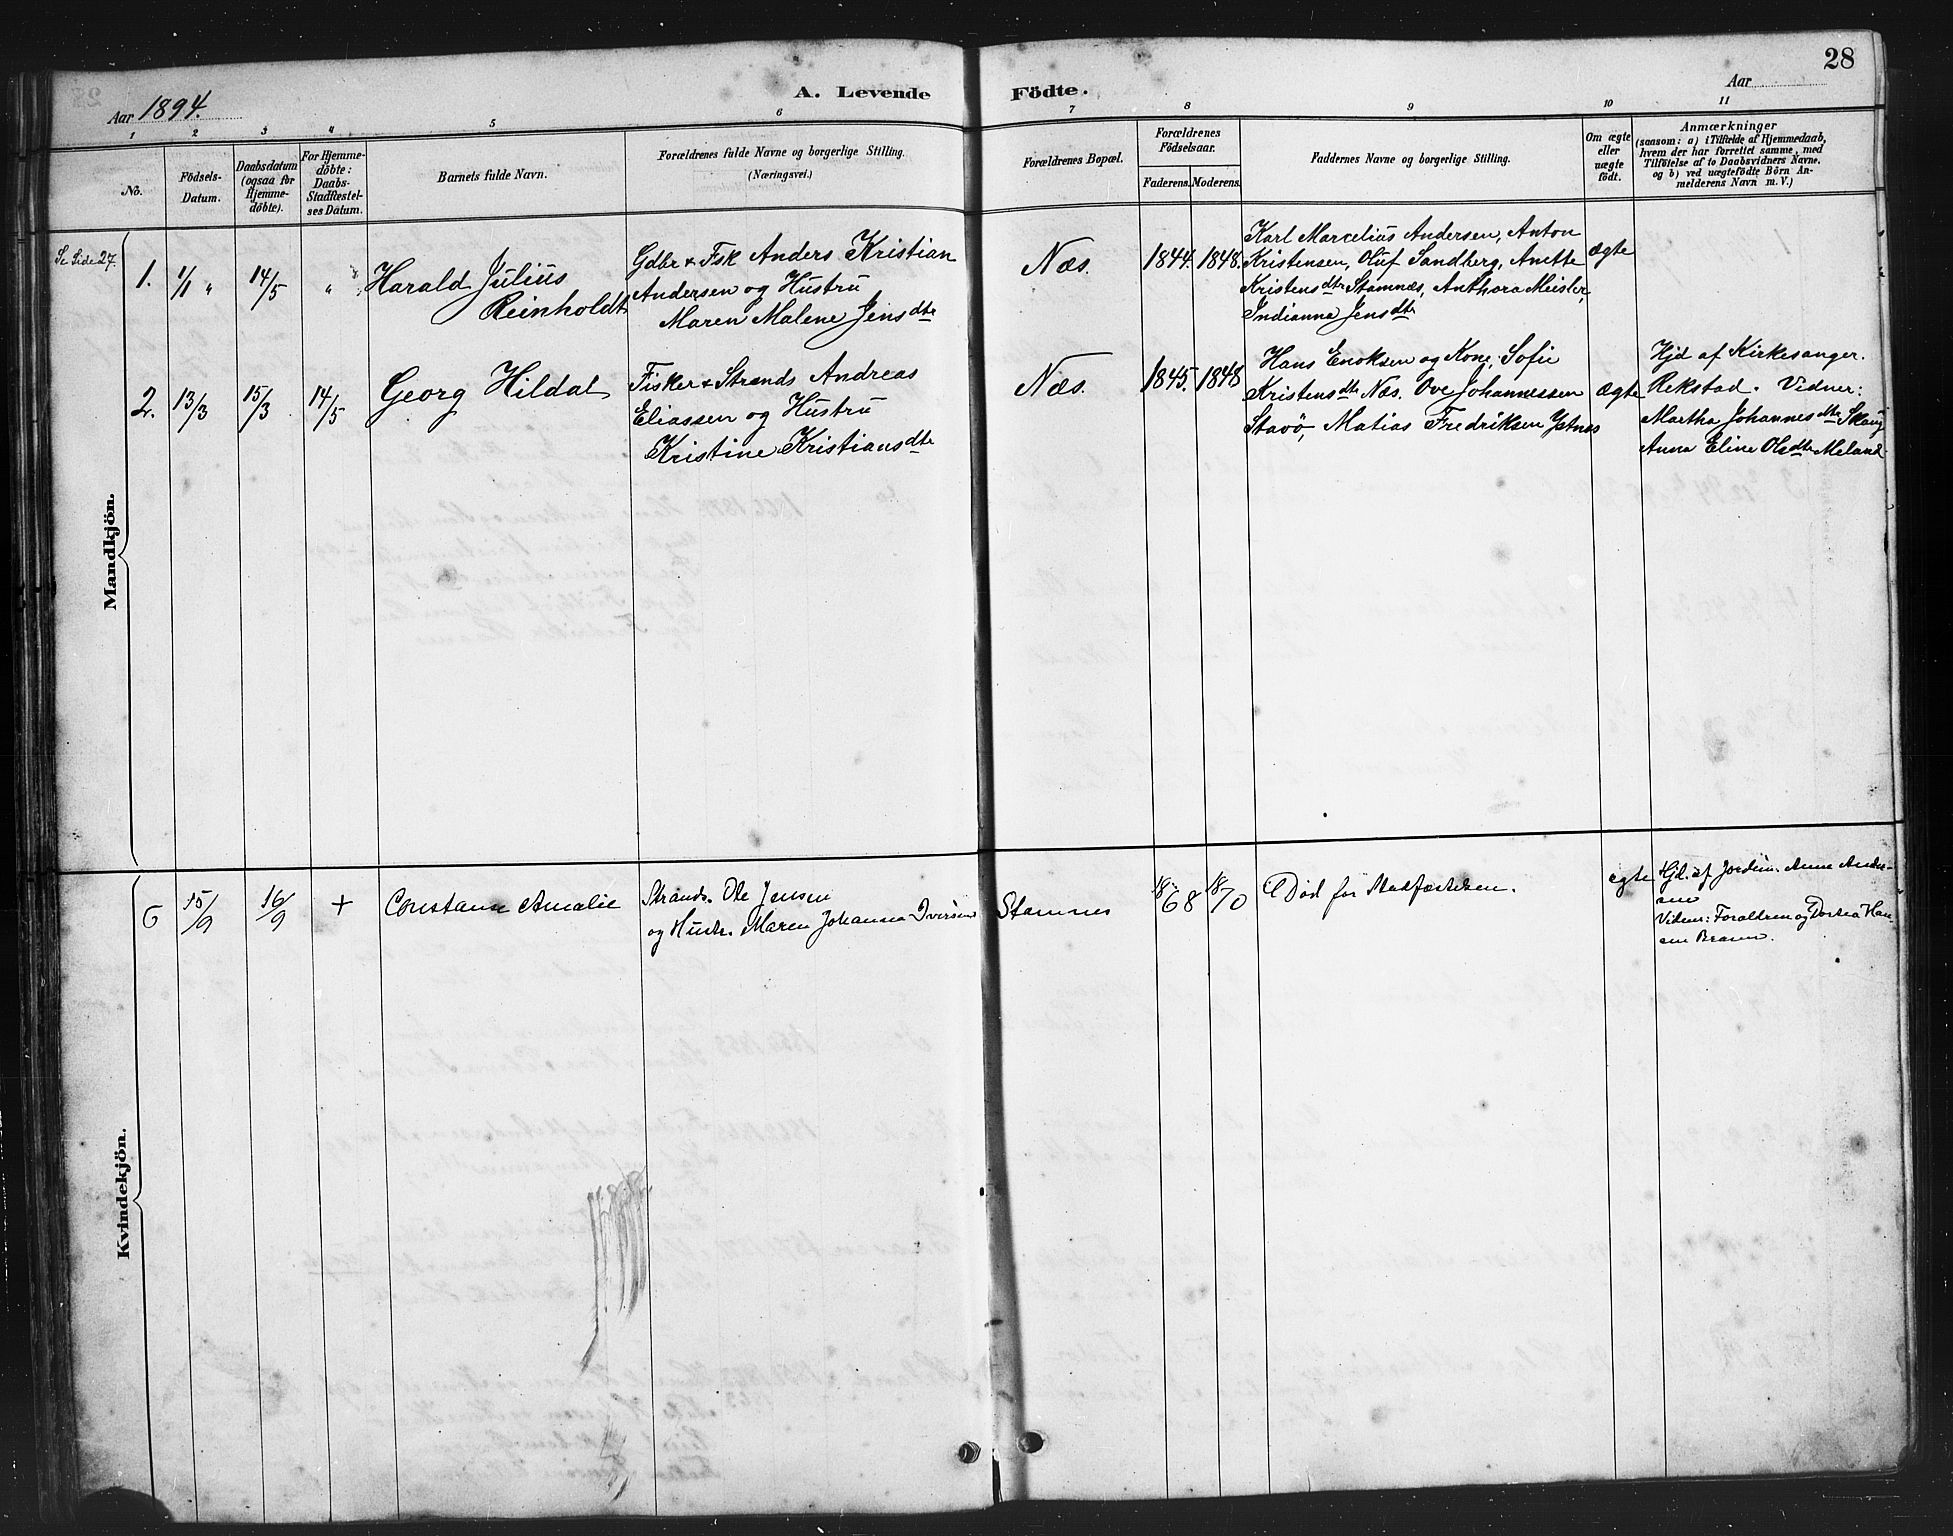 28
Aar 1894.
A. Levende Födte.
Aar
1 2 3 4 5 6 7 8 9 10 11
No.
Födsels-
Datum.
Daabsdatum
(ogsaa for
Hjemme-
döbte).
For Hjemme-
döbte:
Daabs-
Stadfæstel-
ses Datum.
Barnets fulde Navn.
Forældrenes fulde Navne og borgerlige Stilling.
(Næringsvei.)
Forældrenes Bopæl.
Forældrenes
Födselsaar.
Faderens. Moderens.
Faddernes Navne og borgerlige Stilling.
Om ægte
eller
uægte
födt.
Anmærkninger
(saasom: a) i Tilfælde af Hjemmedaab,
hvem der har forrettet samme, med
Tilföielse af to Daabsvidners Navne.
og b) ved uægtefödte Börn An-
melderens Navn m. V.)
Mandkjön.
Se Side 27.
1. 1/1 " 14/5 "
Harald Julius
Reinholdt
Gdbr & Fsk Anders Kristian
Andersen og Hustru
Maren Malene Jensdtr
Næs. 1844. 1848.
Karl Marcelius Andersen, Anton
Kristensen, Oluf Sandberg, Anette
Kristensdtr Stamnæs, Anthora Meisler,
Indianna Jensdtr
ægte
2. 13/3 15/3 14/5
Georg Hildal
Fisker & Strands Andreas
Eliassen og Hustru
Kristine Kristiansdtr
Næs. 1845. 1848
Hans Enoksen og Kone, Sofie
Kristensdtr Næs. Ove Johannessen
Stavö, Matias Fredriksen Ystnes
ægte
Hjd af Kirkesanger.
Rekstad. Vidner:
Martha Johannesdtr Skaug
Anna Eline Olsdtr Meland
Kvindekjön.
6 15/9 16/9 +
Constance Amalie
Strands. Ole Jensen
og Hustr. Maren Johanna Iversen
Stamnes 1868 1870
Död för Stadfæstelsen.
egte
Hjd. af Jordm. Anne Ander-
sen
Vidner: Foraldren og Dortea Han-
sen Brasen.